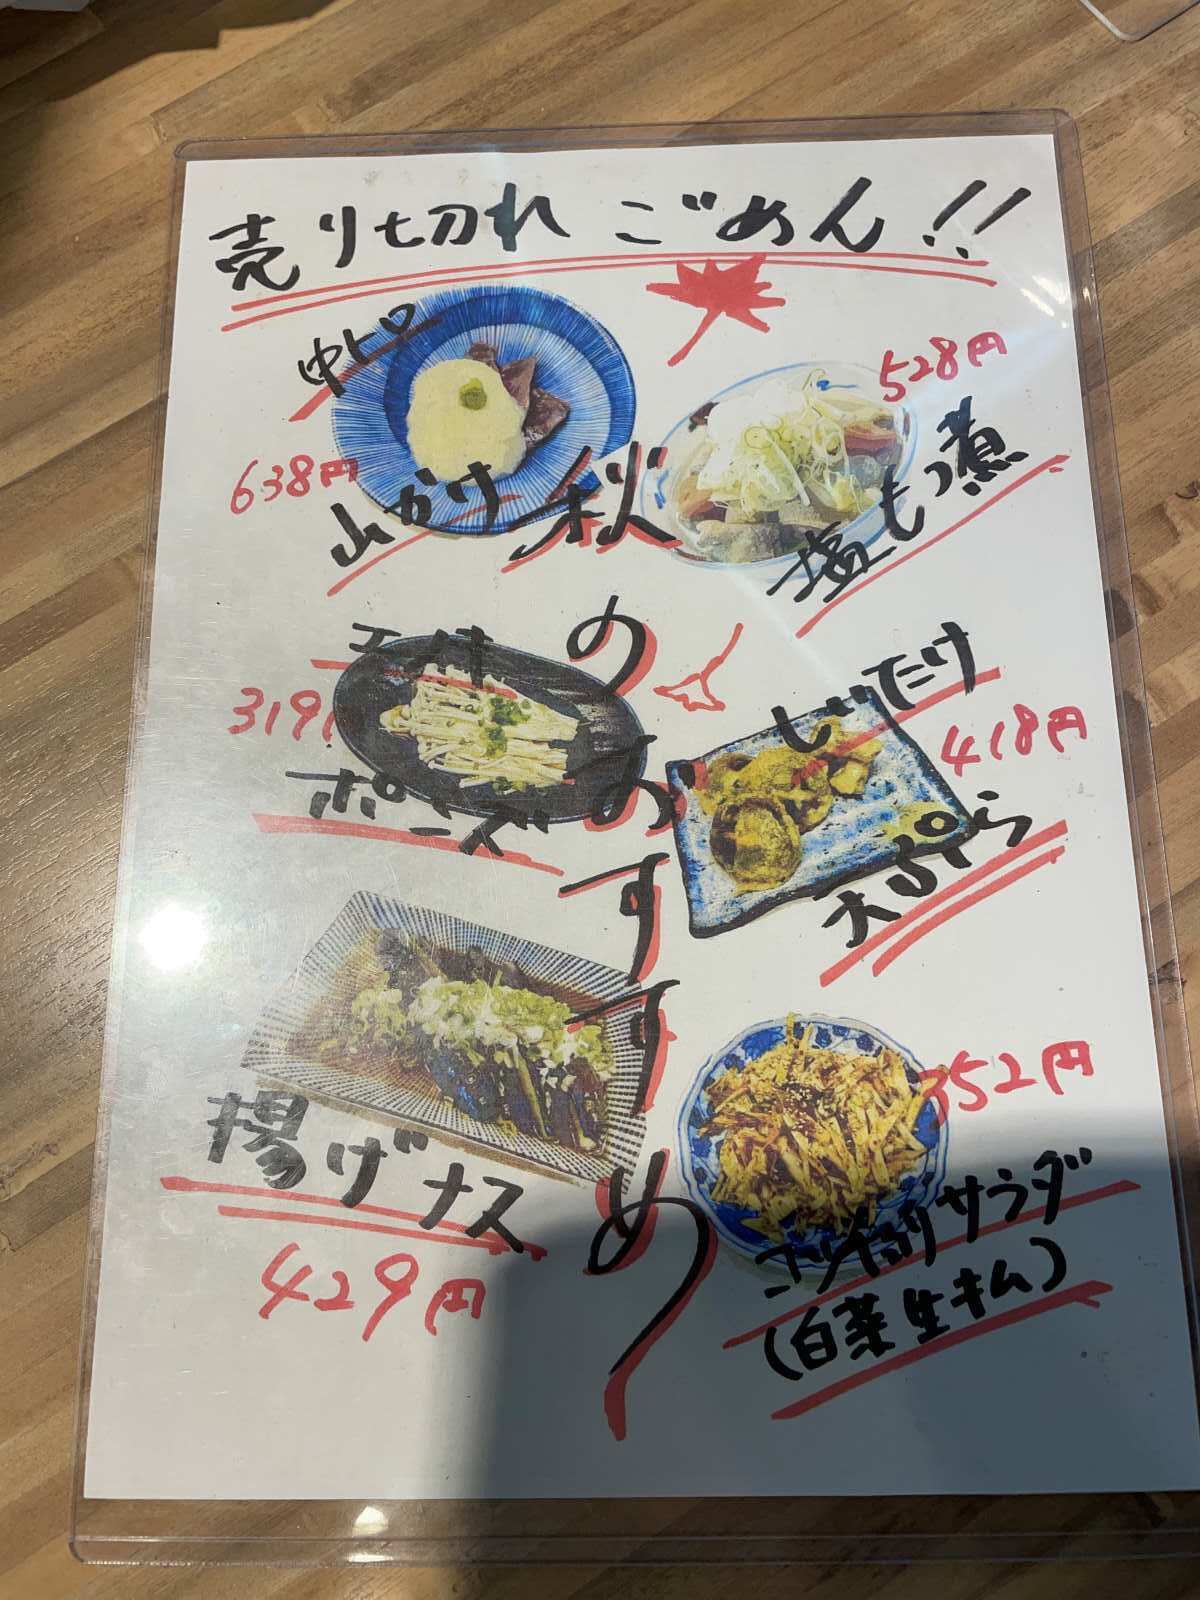 売り切れ ごめん!!
秋のおすすめ
中トロ
山かけ
638円
528円
塩もつ煮
エノキ
ポンズ
319
しいたけ
天ぷら
418円
揚げナス
429円
352円
サラダ
(白菜生キムコ)